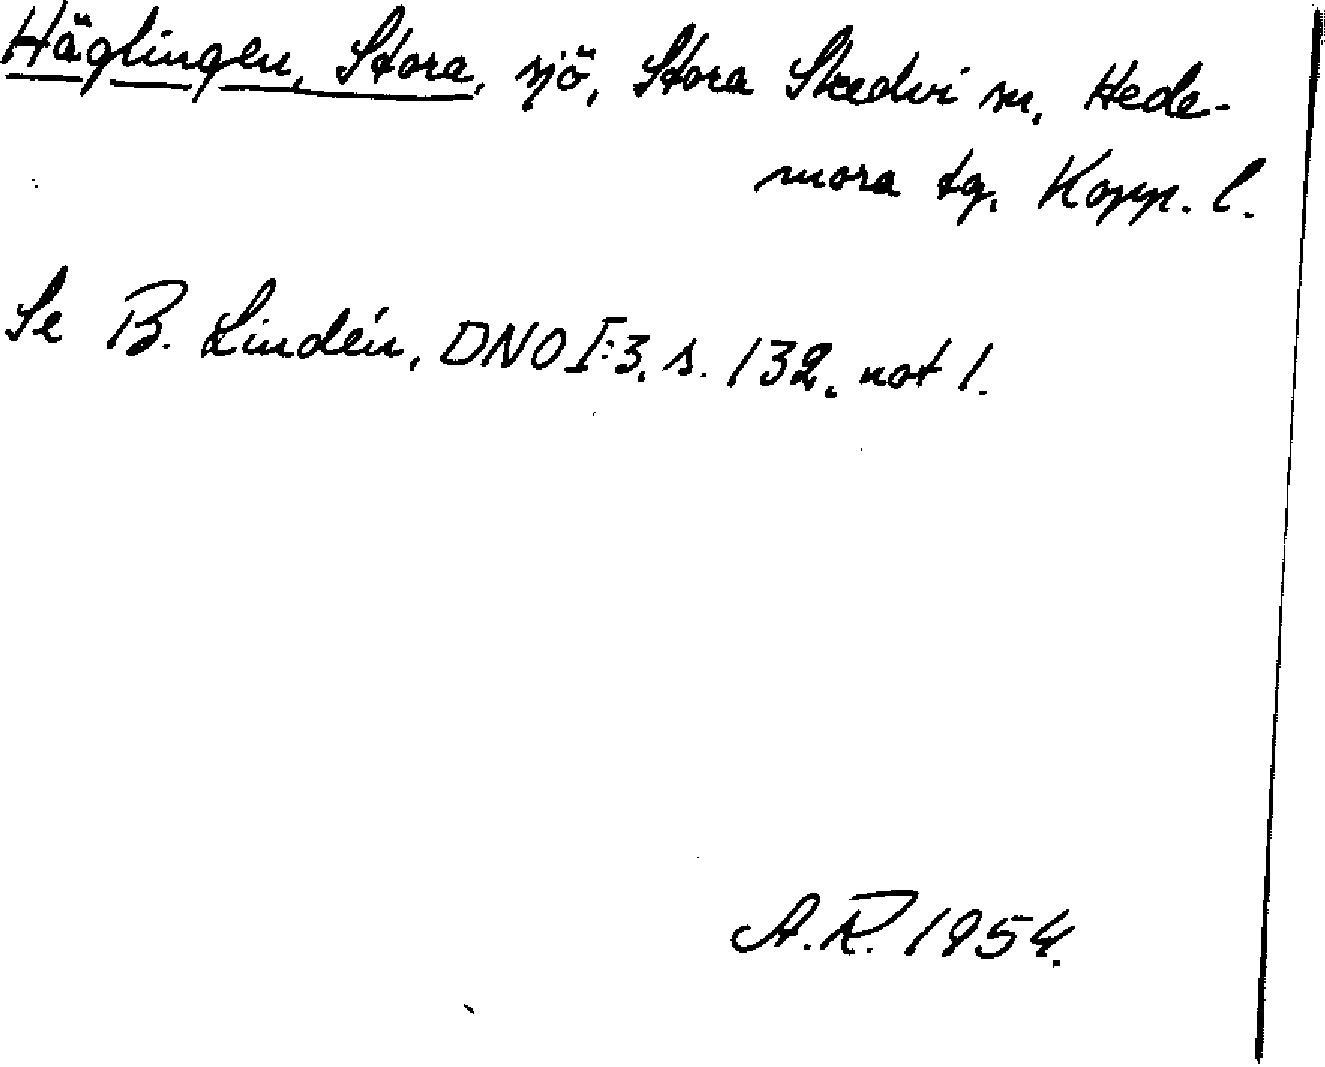 Häglingen, Stora, sjö, Stora Skedvi sn, Hede-
mora tg. Kopp. l.
Se B. Lindén, DNO I:3, s. 132, not 1.
A.R. 1954.